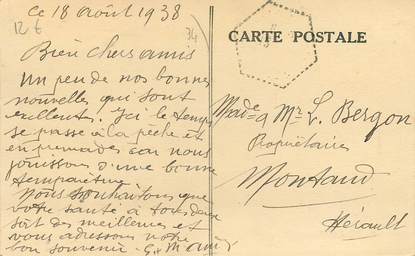 ce 18 août 1938
126
34
Bien chers amis
Un peu de nos bonnes
nouvelles qui sont
exellentes. Ici le temps
se passe à la pêche et
en promades car nous
jouissons d'une bonne
température
Nous souhaitons que
votre santé à tous deux
soit des meilleures et
vous adressons notre
bon souvenir.
CARTE POSTALE
Made & Mr L. Bergon
Propriétaires
Montaud
Hérault